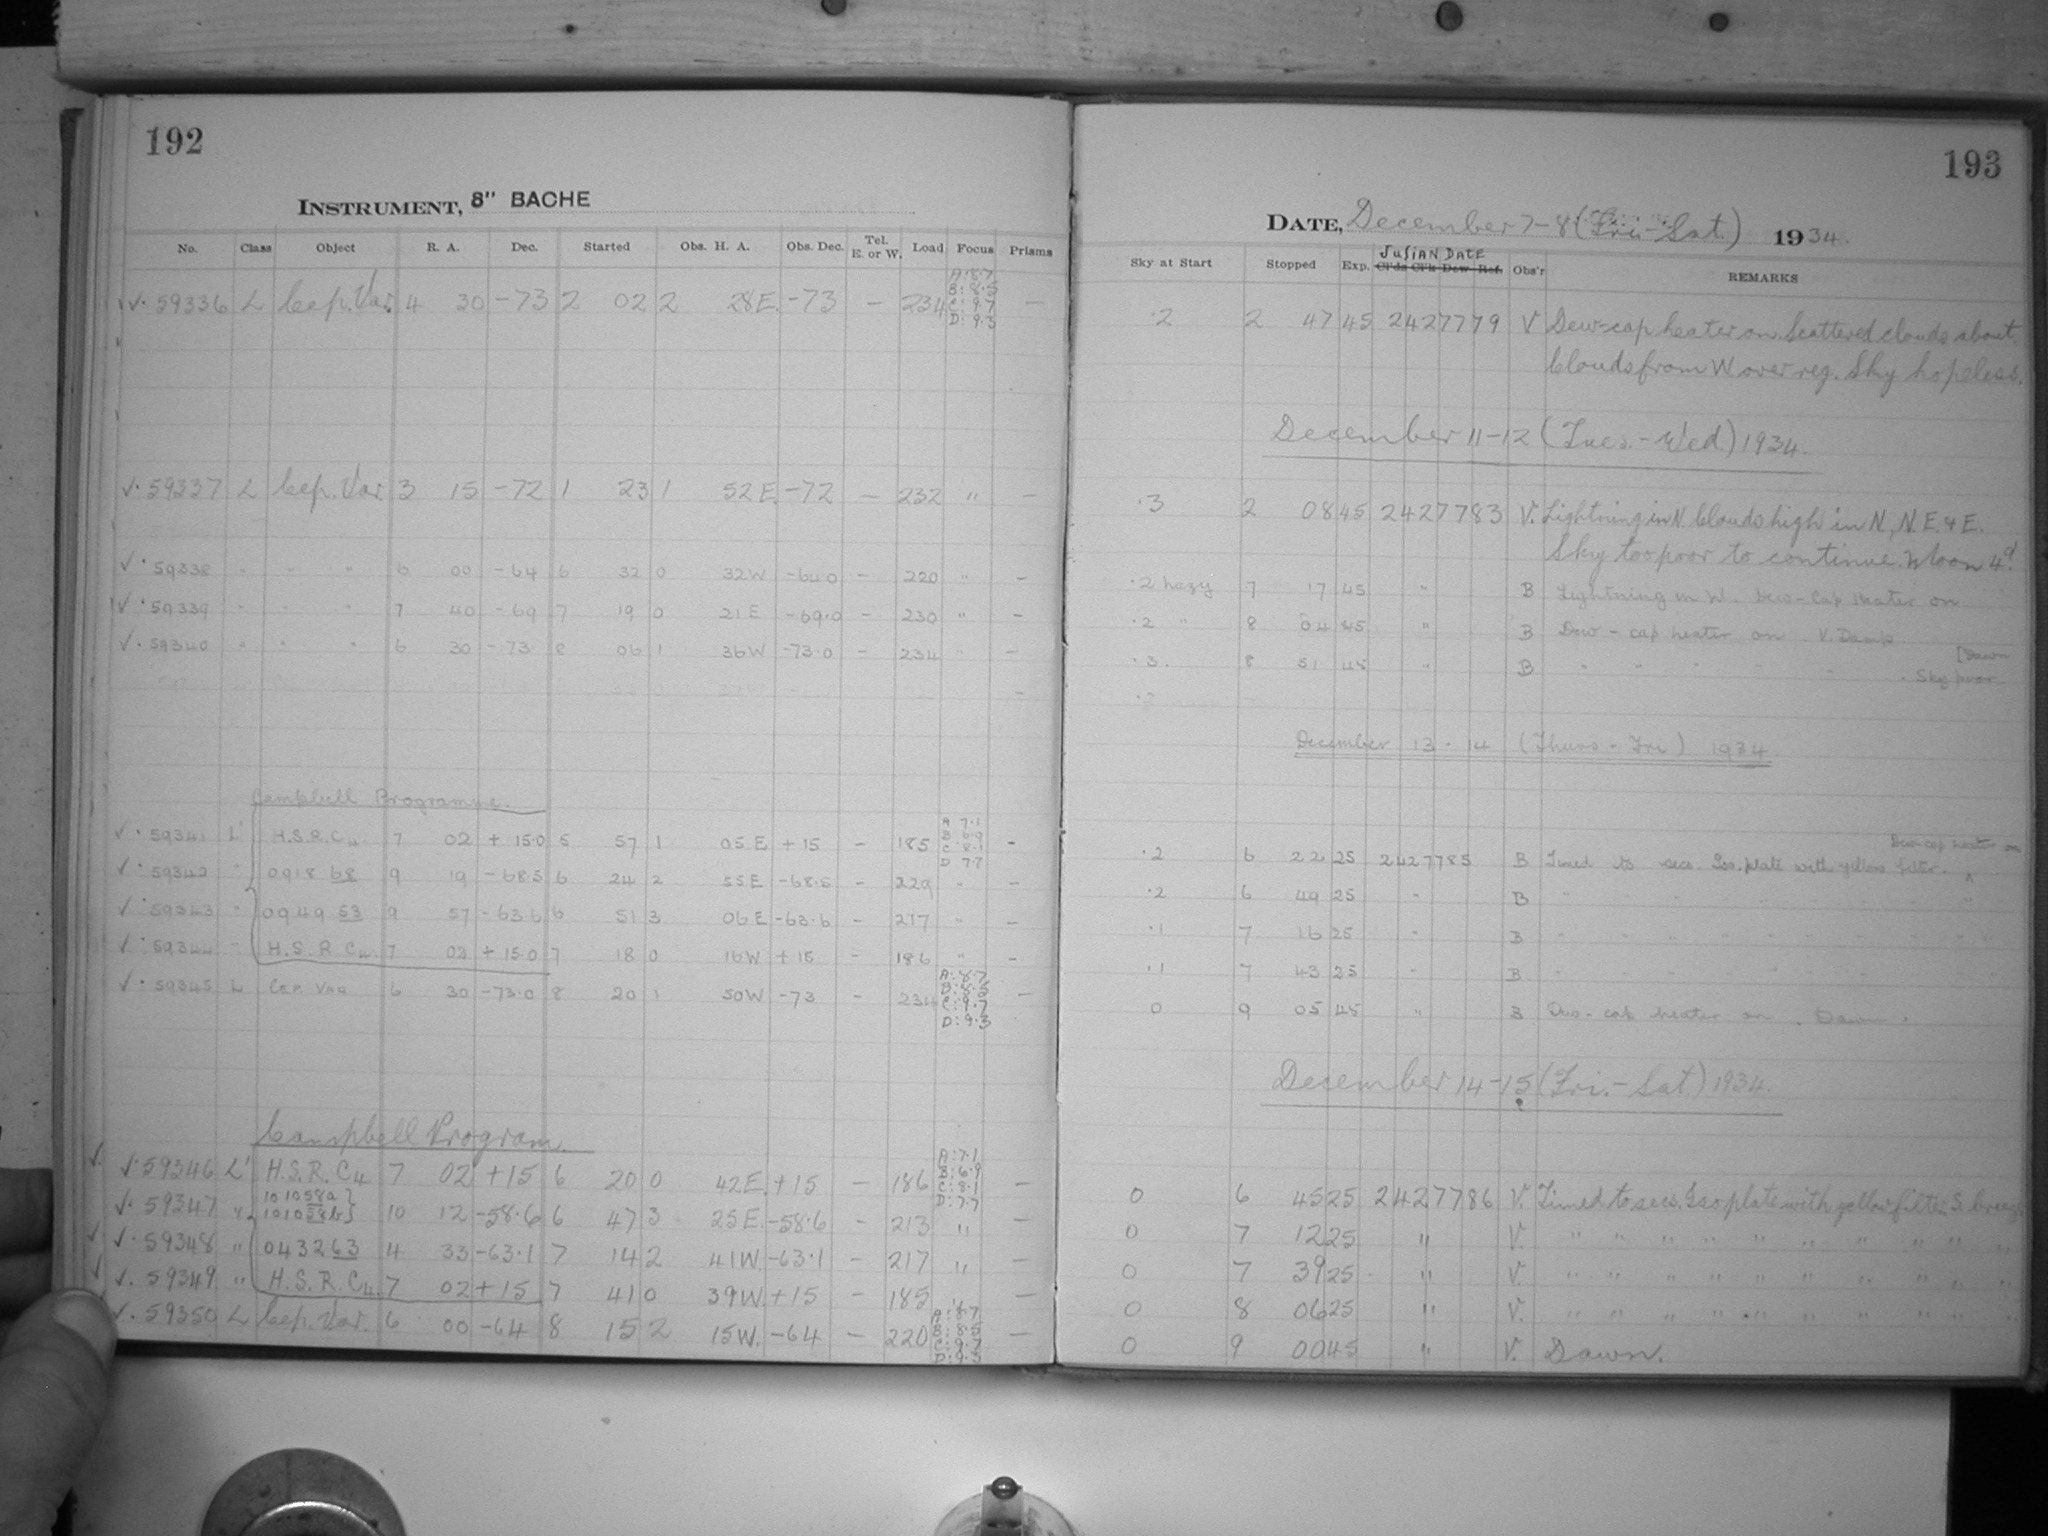 192
INSTRUMENT, 8" BACHE
No. Class Object R. A. Dec. Started Obs. H. A. Obs. Dec. Tel. E. or W. Load Focus Prisms
√· 59336 L Cep. Var. 4 30 -73 2 02 2 28E. -73 — 234 A: 8.7 B: 8.5 C: 9.7 D: 9.3 —
√· 59337 L Cep. Var. 3 15 -72 1 23 1 52E. -72 — 232 " —
√· 59338 " " " 6 00 -64 6 32 0 32W -64.0 — 220 " —
√· 59339 " " " 7 40 -69 7 19 0 21E -69.0 — 230 " —
√· 59340 " " " 6 30 -73 8 06 1 36W -73.0 — 234 " —
Campbell Programme.
√· 59341 L' H.S.R.C4 7 02 +15.0 5 57 1 05E +15 — 185 A 7.1 B 6.9 C 8.1 D 7.7 —
√· 59342 " 0918 68 9 19 -68.5 6 24 2 55E -68.5 — 229 " —
√· 59343 " 0949 53 9 57 -63.6 6 51 3 06E -63.6 — 217 " —
√· 59344 " H.S.R.C4. 7 02 +15.0 7 18 0 16W +15 — 186 " —
√· 59345 L Cep. Var 6 30 -73.0 8 20 1 50W -73 — 234 A: 8.7 B: 8.5 C: 9.7 D: 9.3 —
Campbell Program.
√· 59346 L' H.S.R.C4 7 02 +15 6 20 0 42E. +15 — 186 A: 7.1 B: 6.9 C: 8.1 D: 7.7 —
√· 59347 " 101058a} 101058b} 10 12 -58.6 6 47 3 25E. -58.6 — 213 " —
√· 59348 " 043263 4 33 -63.1 7 14 2 41W. -63.1 — 217 " —
√· 59349 " H.S.R.C4. 7 02 +15 7 41 0 39W. +15 — 185 " —
√· 59350 L Cep. Var. 6 00 -64 8 15 2 15W. -64 — 220 A: 8.7 B: 8.5 C: 9.7 D: 9.3 —
193
DATE, December 7-8 (Fri.-Sat.) 1934.
JULIAN DATE
Sky at Start Stopped Exp. Cl'ds Cl'k Dew Ref. Obs'r REMARKS
.2 2 47 45 2427779 V Dew-cap heater on. Scattered clouds about.
Clouds from W over reg. Sky hopeless.
December 11-12 (Tues.-Wed.) 1934.
.3 2 08 45 2427783 V. Lightning in N. Clouds high in N, N.E. & E.
Sky too poor to continue. Moon 4d.
.2 hazy 7 17 45 " B Lightning in W. Dew-Cap heater on
.2 " 8 04 45 " B Dew-cap heater on. V. Damp
.3. 8 51 45 " B " " " " [Dawn
. Sky poor
December 13-14 (Thurs-Fri) 1934.
Dew cap heater on
.2 6 22 25 2427785 B Timed to secs. Iso. plate with yellow filter. ^
.2 6 49 25 " B " " " " " " " "
.1 7 16 25 " B " " " " " " " "
.1 7 43 25 " B " " " " " " "
0 9 05 45 " B Dew-cap heater on. Dawn.
December 14-15 (Fri.-Sat.) 1934.
0 6 45 25 2427786 V. Timed to secs. Iso plate with yellow filter. S. breeze
0 7 12 25 " V. " " " " " " " " " "
0 7 39 25 " V. " " " " " " " " " "
0 8 06 25 " V. " " " " " " " " " "
0 9 00 45 " V. Dawn.